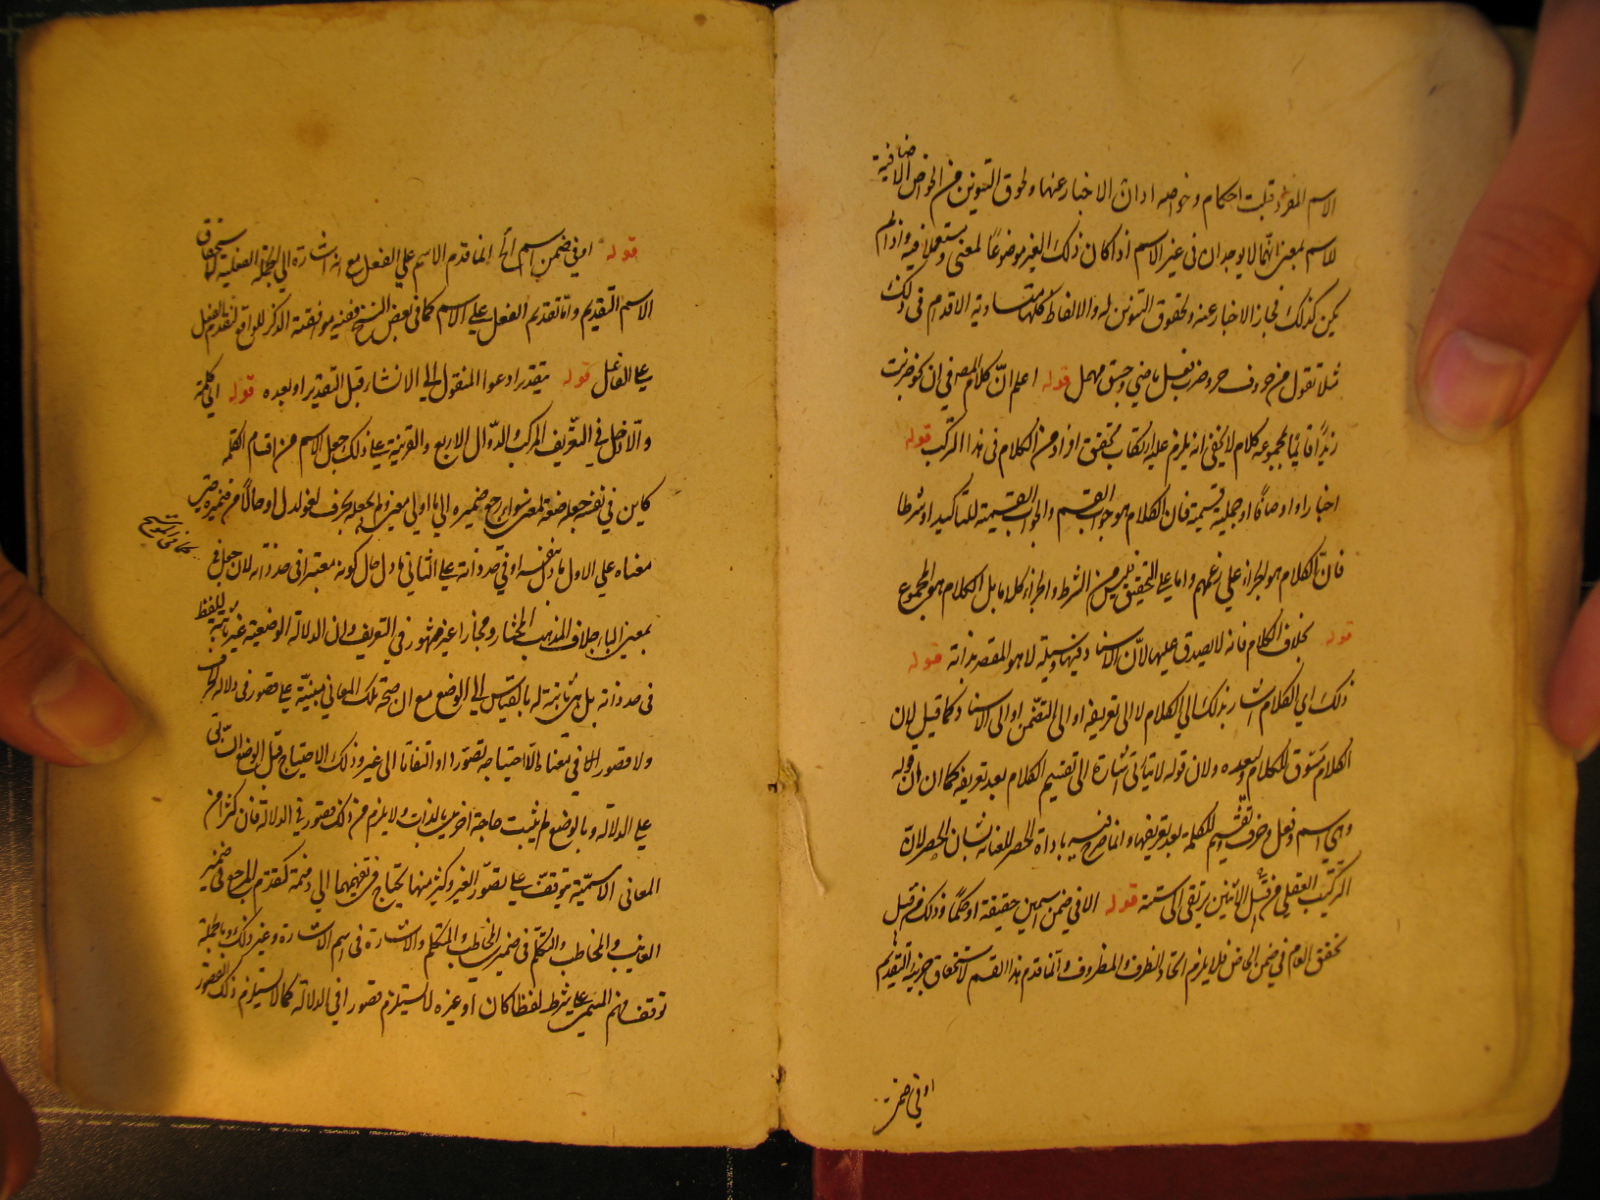 الاسم المفرد قلت احكام وخواصه اذ ان الاخبار عنها ولحوق التنوين من الخواص الاضافية
للاسم بمعنى انهما لا يوجدان فى غير الاسم اذا كان ذلك الغير موضوعاً لمعنى ومستعملا فيه واذا لم
يكن كذلك فجاز الاخبار عنه ولحقوق التنوين له والالفاظ كلها متساوية الاقدام فى ذلك
مثلا تقول من حروف جر وضرب فعل ماضى وجسق مهمل قوله اعلم انّ كلام المص فى ان نحو ضربت
زيدًا قائمًا بمجموعه كلام لا يخفى انه يلزم عليه ارتكاب تحقق افراد من الكلام فى هذا التركيب قوله
اخبارا او اوصافًا او جملة قسمية فان الكلام هو جواب القسم والجواب القسمية للتاكيد او شرطا
فانّ الكلام هو الجزاء على زعمهم واما على التحقيق فليس من الشرط والجزاء كلاما بل الكلام هو المجموع
قوله بخلاف الكلام فانه لا يصدق عليها لانّ الاسناد فيها وسيلة لا هو المقصد لذاته قوله
ذلك اى الكلام اشار بذلك الى الكلام لا الى تعريفه او الى التضمن او الى الاسناد كما قيل لان
الكلام مسوق للكلام وبعده ولان قوله لا يتأتى اشارة الى تقسيم الكلام بعد تعريفه كما ان قوله
وهى اسم وفعل وحرف تقسيم للكلمة بعد تعريفها وانما صرح فيه باداة الحصر للعناية بشان الحصر لانّ
التركيب العقلى من قبل الاثنين يرتقى الى ستة قوله الا فى ضمن اسمين حقيقة او حكمًا وذلك من قبيل
تحقق العام فى ضمن الخاص فلا يلزم اتحاد الظرف والمظروف وانما قدم هذا القسم لاستحقاق جزئيه التقديم
او فى ضمن
قوله او فى ضمن اسم الخ انما قدم الاسم على الفعل مع انه اشارة الى الجملة الفعلية لاستحقاق
الاسم التقديم واما تقديم الفعل على الاسم كما فى بعض النسخ ففيه موافقة الذكر للواقع لتقدم الفعل
على الفاعل قوله بتقدير ادعوا المنقول الى الانشاء قبل التقدير او بعده قوله اى كلمة
والا دخل فى التعريف المركب الدوال الاربع والقرينة على ذلك جعل الاسم من اقسام الكلمة
كاين فى نفسه جعله صفة لمعنى سواء رجع ضميره الى ما او الى معنى ولم يجعله بحرف لغو لدل او حالاً من ضميره حتى
كما فى المتوسط
معناه على الاول ما دل بنفسه او فى حد ذاته وعلى الثانى ما دل حال كونه معتبرا فى حد ذاته لان جعل فى
بمعنى الباء خلاف المذهب المختار ومجازا غير مشهور فى التعريف ولان الدلالة الوضعية غير ثابتة للفظ
فى حد ذاته بل هى ثابتة له بالقياس الى الوضع مع ان صحة تلك المعانى مبنية على قصور فى دلالة الحرف
ولا قصور الا فى معناه لاحتياجه تصورا او التفاتا الى غير وذلك الاحتياج قبل الوضع السابق
على الدلالة وبالوضع لم يثبت حاجة اخرى بالذات ولا يلزم من ذلك قصور فى الدلالة فان كثيرا من
المعانى الاسميّة يتوقف على تصور الغير وكثير منها يحتاج فى تفهيمها الى ضميمة كتقدم المرجع فى ضمير
الغايب والمخاطب والتكلم فى ضمير المخاطب والمتكلم والاشارة فى اسم الاشارة وغير ذلك وبالجملة
توقف فهم المسمى على شرط لفظا كان او غيره لا يستلزم قصورا فى الدلالة كما لا يستلزم ذلك القصور